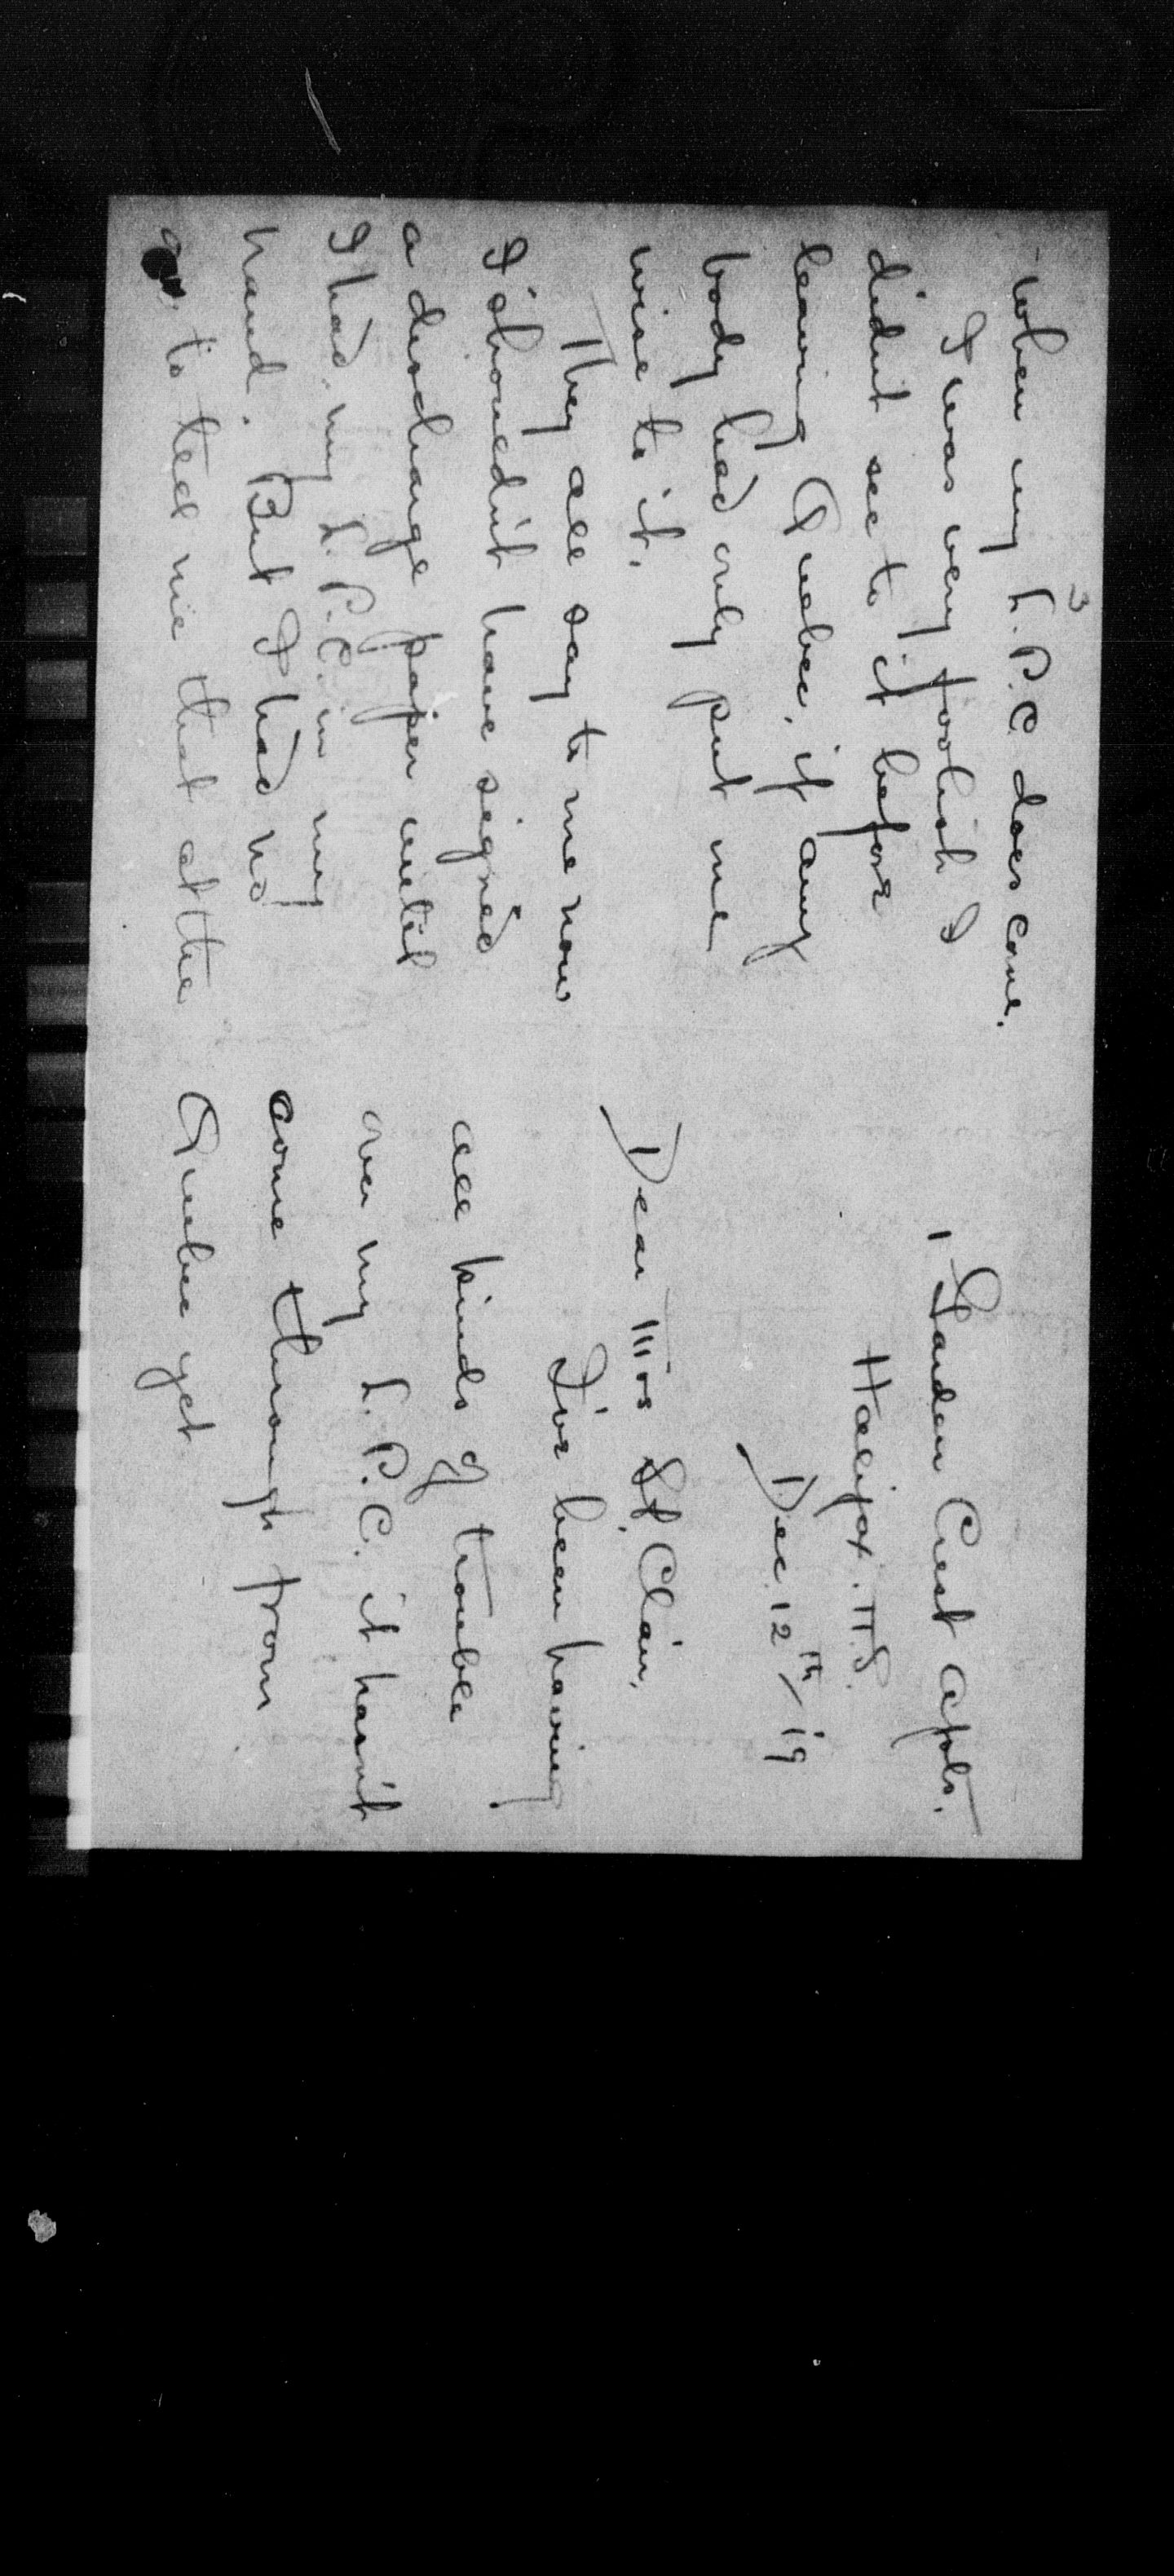 3
when my L.P.C. does come.
I was very foolish I
didn't see to it before
leaving Quebec, if any
body had only put me
wise to it.
They all say to me now
I shouldn't have signed
a discharge paper until
I had my L.P.C. in my
hand. But I had no
to tell me that at the
1 Garden Crest Apts.
Halifax. N.S.
Dec. 12th/19
Dear Mrs St. Clair,
I've been having
all kinds of trouble
over my L.P.C. it hasn't
come through from
Quebec yet